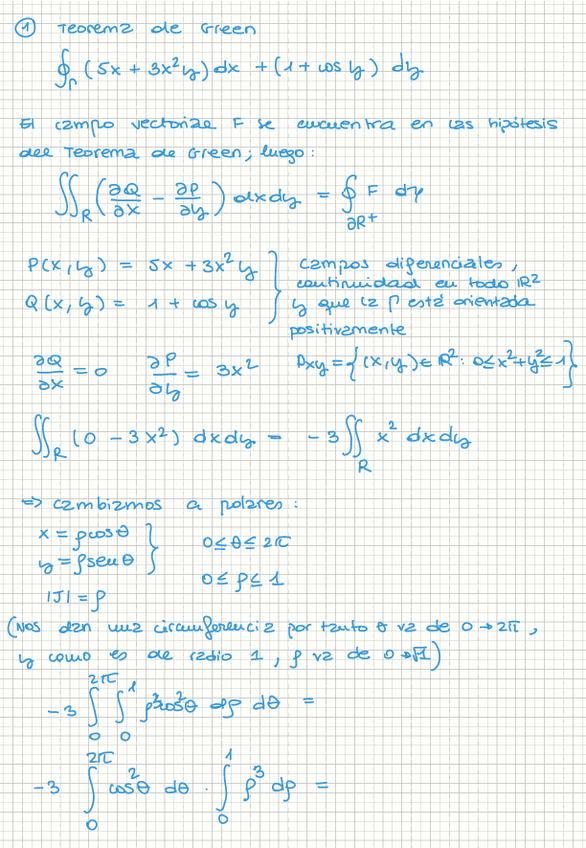 ① Teorema de Green
∮_Γ (5x + 3x²y) dx + (1 + cos y) dy
El campo vectorial F se encuentra en las hipótesis
del Teorema de Green; luego:
∬_R (∂Q/∂x − ∂P/∂y) dxdy = ∮_∂R⁺ F dγ
P(x,y) = 5x + 3x²y } campos diferenciales,
continuidad en todo ℝ²
Q(x,y) = 1 + cos y
y que la Γ está orientada
positivamente
∂Q/∂x = 0 ∂P/∂y = 3x² Dxy = {(x,y) ∈ ℝ² : 0 ≤ x² + y² ≤ 1}
∬_R (0 − 3x²) dxdy = −3 ∬_R x² dxdy
⇒ cambiamos a polares :
x = ρcosθ } 0 ≤ θ ≤ 2π
y = ρsenθ
0 ≤ ρ ≤ 1
|J| = ρ
(Nos dan una circunferencia por tanto θ va de 0 → 2π,
y como es de radio 1, ρ va de 0 → √1)
−3 ∫₀^2π ∫₀^1 ρ³cos²θ dρ dθ =
−3 ∫₀^2π cos²θ dθ · ∫₀^1 ρ³ dρ =